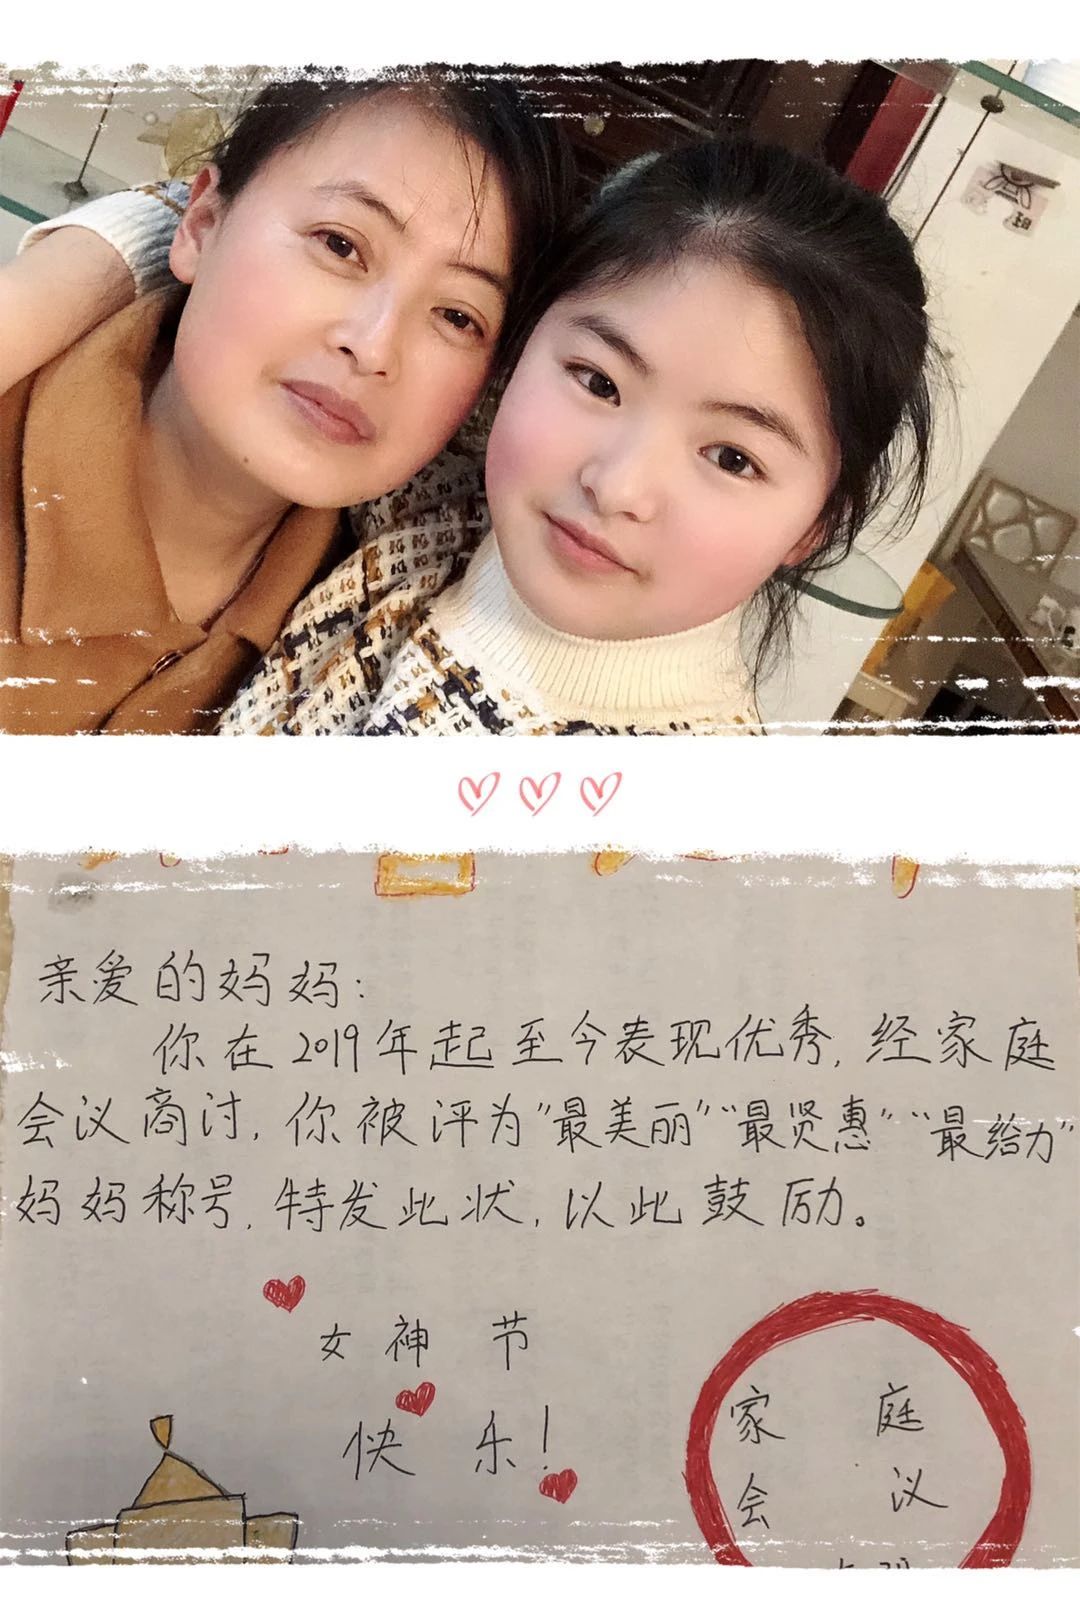 亲爱的妈妈:
你在2019年起至今表现优秀,经家庭
会议商讨,你被评为"最美丽""最贤惠""最给力"
妈妈称号,特发此状,以此鼓励。
女神节
快乐!
家庭
会议